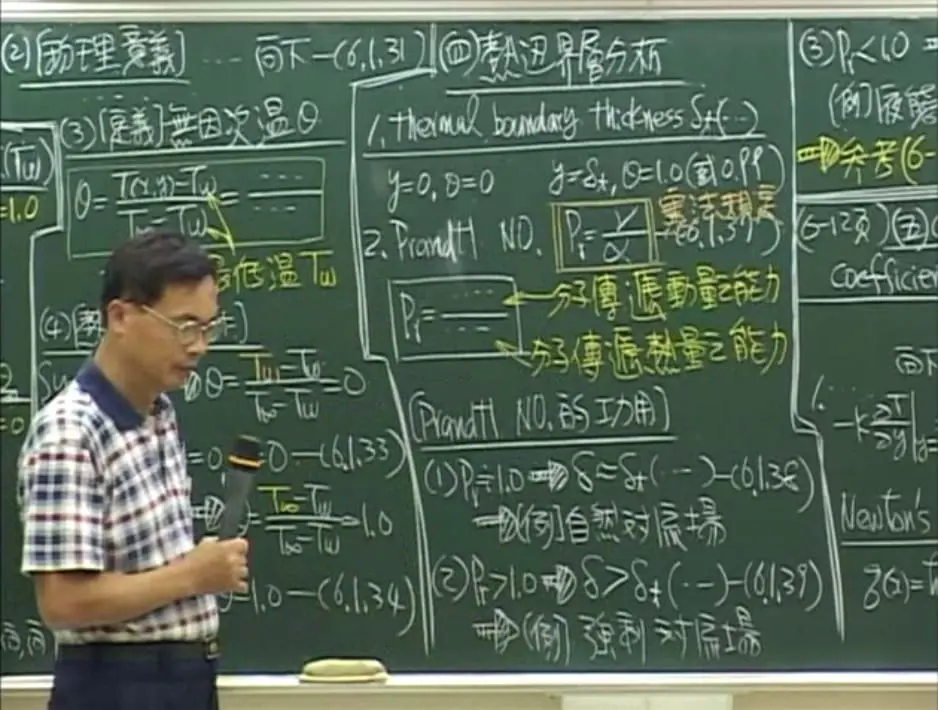 (2) [物理意義] … 向下—(6.1.31)
(3) [定義] 無因次溫θ
θ = T(x,y)-Tw / T∞-Tw = ---
低溫Tw
(4)
θ = Tw-Tw / T∞-Tw = 0
=0 —(6.1.33)
= T∞-Tw / T∞-Tw = 1.0
=1.0 —(6.1.34)
(Tw)
=1.0
(四) 熱边界層分析
1. thermal boundary thickness δt (…)
y=0, θ=0 y=δt, θ=1.0 (或0.99)
2. Prandtl NO. Pr = ν/α (6.1.37)
Pr = ---
←分子傳遞動量之能力
←分子傳遞熱量之能力
[Prandtl NO. 的功用]
(1) Pr≒1.0 ⇒ δ≈δt (…) —(6.1.38)
⇒ [例] 自然對流場
(2) Pr>1.0 ⇒ δ>δt (…) —(6.1.39)
⇒ [例] 強制對流場
(3) Pr<1.0 ⇒
[例] 液態
⇒ 參考(6-
(6-12頁) (五)
coefficien
向下
1.
-k ∂T/∂y |y=
Newton's
q(x)=h